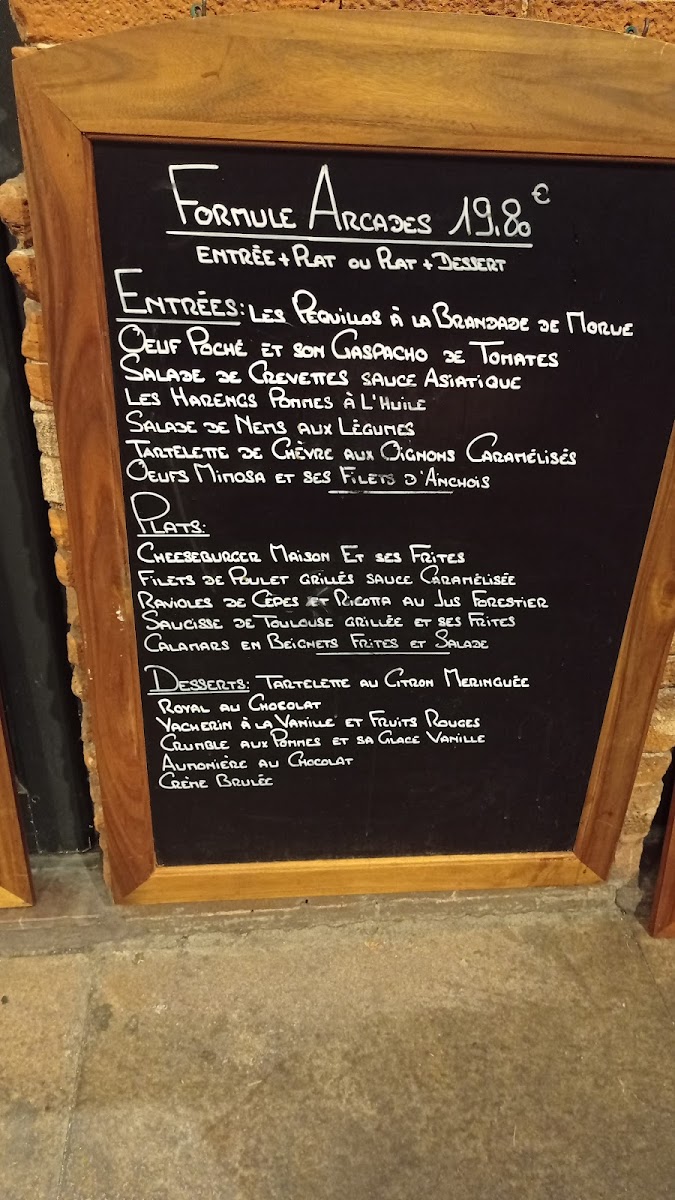 Formule Arcades 19.80€
Entrée + Plat ou Plat + Dessert
Entrées: Les Péquillos à la Brandade de Morue
Oeuf Poché et son Gaspacho de Tomates
Salade de Crevettes sauce Asiatique
Les Harengs Pommes à L'Huile
Salade de Nems aux Légumes
Tartelette de Chèvre aux Oignons Caramélisés
Oeufs Mimosa et ses Filets d'Anchois
Plats:
Cheeseburger Maison Et ses Frites
Filets de Poulet grillés sauce Caramélisée
Ravioles de Cèpes et Ricotta au Jus Forestier
Saucisse de Toulouse grillée et ses Frites
Calamars en Beignets Frites et Salade
Desserts: Tartelette au Citron Meringuée
Royal au Chocolat
Vacherin à la Vanille et Fruits Rouges
Crumble aux Pommes et sa Glace Vanille
Aumonière au Chocolat
Crème Brulée